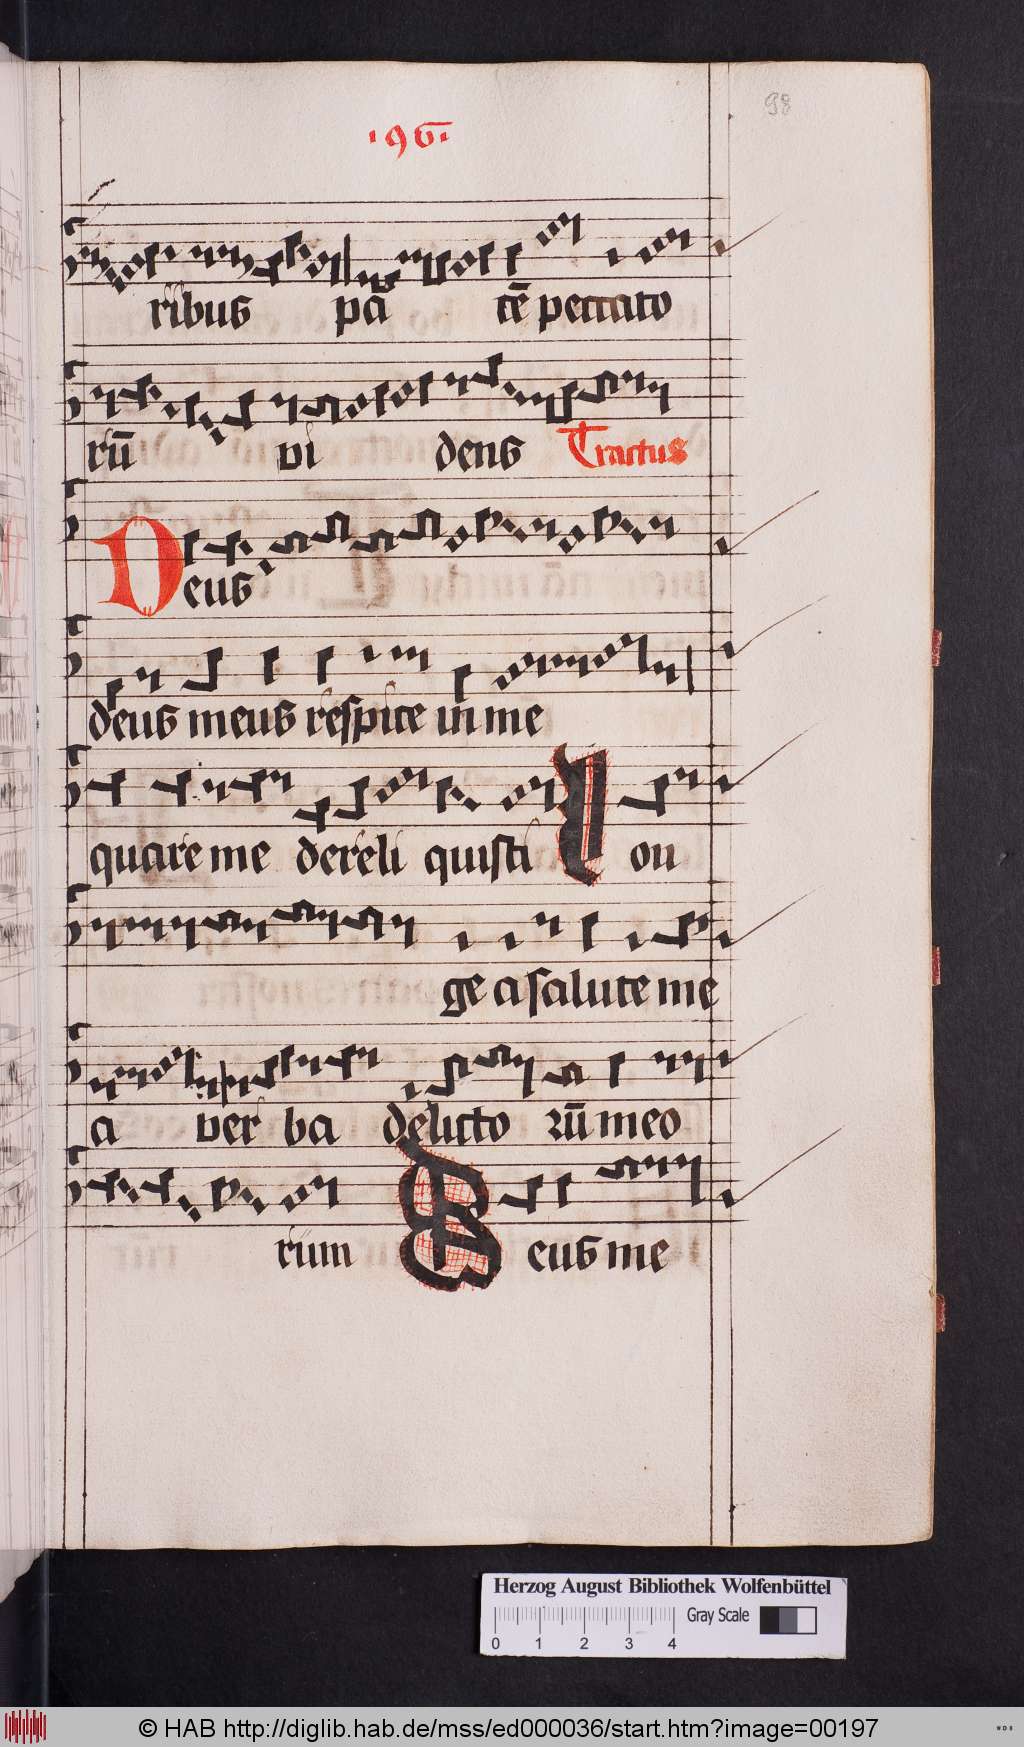 98
·96·
ribus pā tē peccato
rū vi dens Tractus
Deus
deus meus respice in me
quare me dereli quisti L on
ge a salute me
a ver ba delicto rū meo
rum D eus me
Herzog August Bibliothek Wolfenbüttel
Gray Scale
0 1 2 3 4
© HAB http://diglib.hab.de/mss/ed000036/start.htm?image=00197